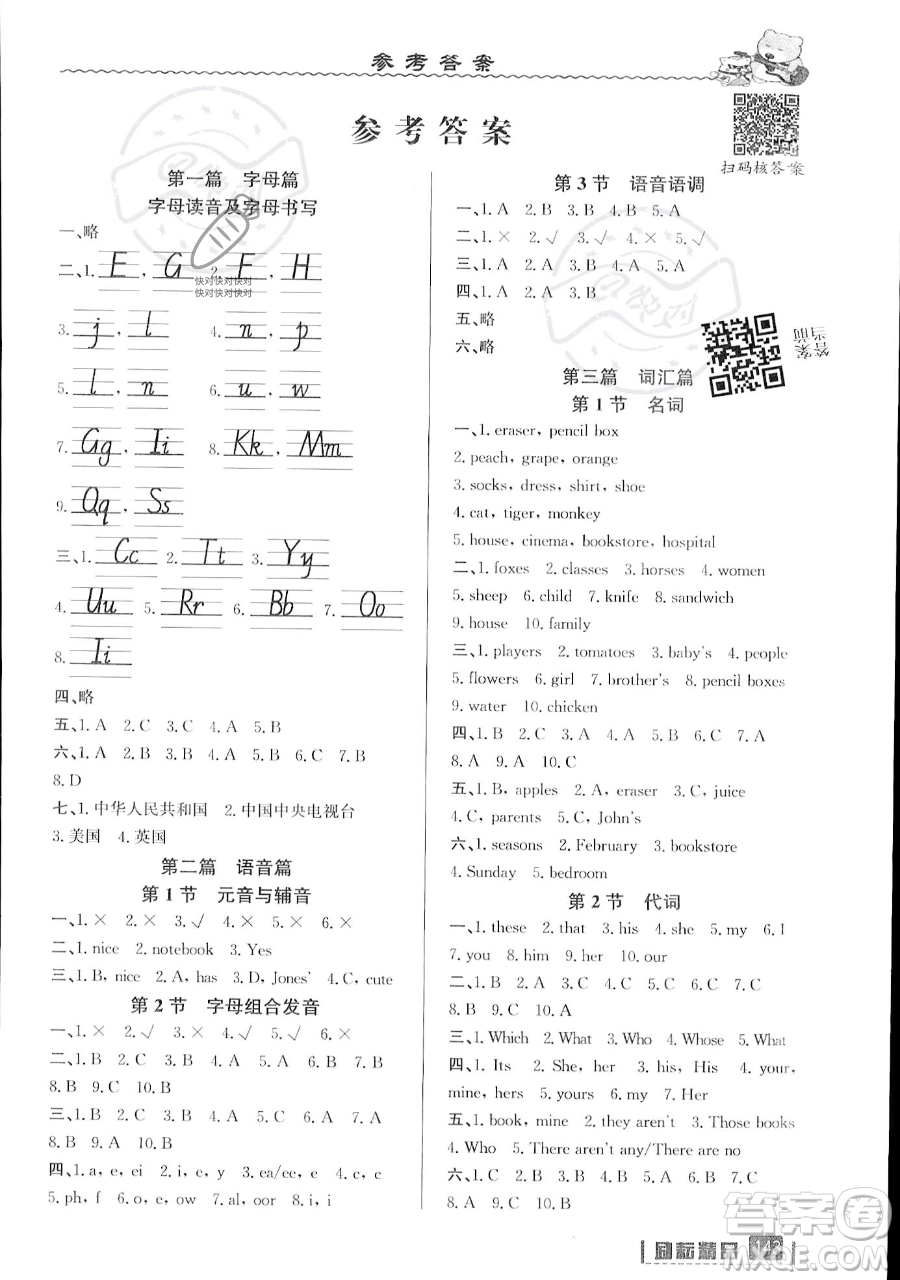 参考答案
参考答案
扫码核答案
第一篇 字母篇
字母读音及字母书写
一、略
二、1. E, G 2. F, H
快对快对快对
快对快对快对
3. j, l 4. n, p
5. l, n 6. u, w
7. Gg Ii 8. Kk Mm
9. Qq Ss
三、1. Cc 2. Tt 3. Yy
4. Uu 5. Rr 6. Bb 7. Oo
8. Ii
四、略
五、1. A 2. C 3. C 4. A 5. B
六、1. A 2. B 3. B 4. C 5. C 6. C 7. B
8. D
七、1. 中华人民共和国 2. 中国中央电视台
3. 美国 4. 英国
第二篇 语音篇
第1节 元音与辅音
一、1. × 2. × 3. √ 4. × 5. ×
二、1. nice 2. notebook 3. Yes
三、1. B, nice 2. A, has 3. D, Jones' 4. C, cute
第2节 字母组合发音
一、1. × 2. √ 3. × 4. √ 5. √ 6. ×
二、1. B 2. C 3. B 4. B 5. C 6. B 7. C
8. B 9. C 10. B
三、1. C 2. B 3. A 4. B 5. A 6. B 7. A
8. B 9. A 10. B
四、1. a, e, ei 2. i, e, y 3. ea/ee, e 4. i, i
5. ph, f 6. o, e, ow 7. al, oor 8. i, i
第3节 语音语调
一、1. A 2. B 3. B 4. B 5. A
二、1. × 2. √ 3. √ 4. × 5. √
三、1. A 2. B 3. A 4. B 5. B
四、1. A 2. A 3. B
五、略
六、略
答案
当前
第三篇 词汇篇
第1节 名词
一、1. eraser, pencil box
2. peach, grape, orange
3. socks, dress, shirt, shoe
4. cat, tiger, monkey
5. house, cinema, bookstore, hospital
二、1. foxes 2. classes 3. horses 4. women
5. sheep 6. child 7. knife 8. sandwich
9. house 10. family
三、1. players 2. tomatoes 3. baby's 4. people
5. flowers 6. girl 7. brother's 8. pencil boxes
9. water 10. chicken
四、1. B 2. C 3. A 4. B 5. C 6. B 7. A
8. A 9. A 10. C
五、1. B, apples 2. A, eraser 3. C, juice
4. C, parents 5. C, John's
六、1. seasons 2. February 3. bookstore
4. Sunday 5. bedroom
第2节 代词
一、1. these 2. that 3. his 4. she 5. my 6. I
7. you 8. him 9. her 10. our
二、1. C 2. B 3. C 4. A 5. A 6. A 7. C
8. B 9. C 10. A
三、1. Which 2. What 3. Who 4. Whose 5. What
四、1. Its 2. She, her 3. his, His 4. your,
mine, hers 5. yours 6. my 7. Her
五、1. book, mine 2. they aren't 3. Those books
4. Who 5. There aren't any/There are no
六、1. C 2. C 3. B 4. A 5. B 6. B 7. C
8. A 9. C 10. B
励耘精品 143
答案圈